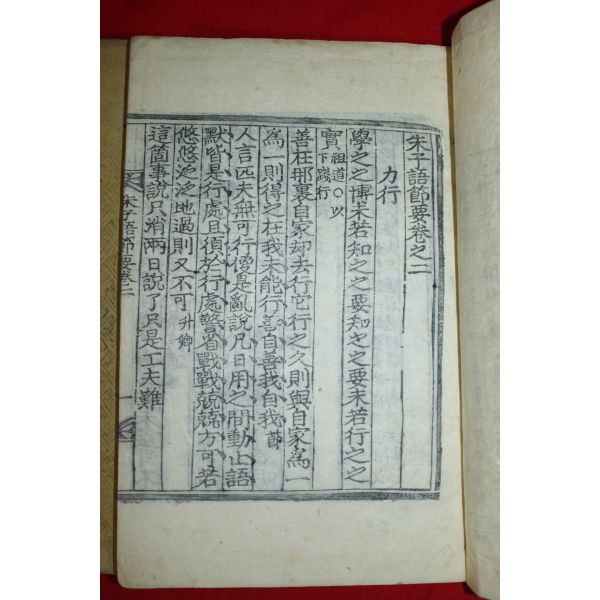 朱子語節要卷之二
力行
學之之博未若知之之要知之之要未若行之之
實 祖道○以下踐行
善在那裏自家却去行它行之久則與自家爲一
爲一則得之在我未能行善自善我自我 節
人言匹夫無可行便是亂說凡日用之間動止語
默皆是行處且須於行處警省戰戰兢兢方可若
悠悠泛泛地過則又不可 升卿
這箇事說只消兩日說了只是工夫難
朱子語節要卷二
一